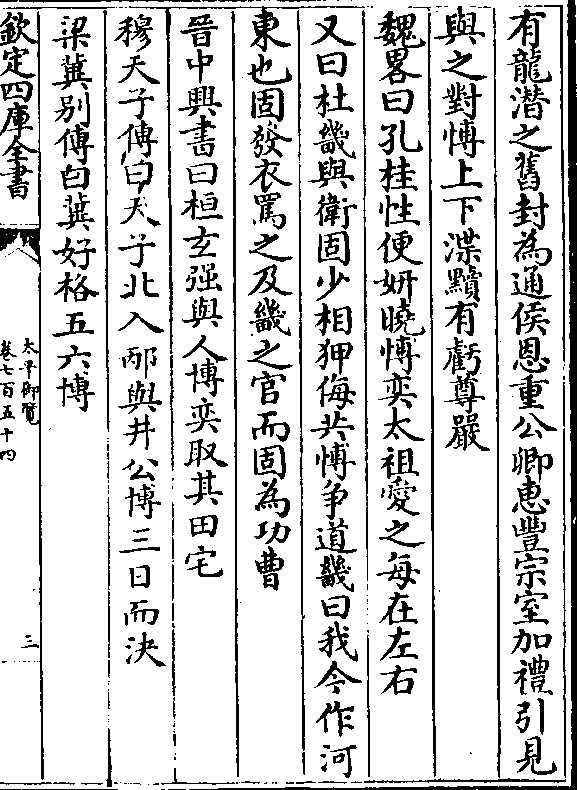 有龍潛之舊封為通侯恩重公卿惠豐宗室加禮引見
與之對愽上下渫黷有虧尊嚴
魏畧曰孔桂性便妍曉愽奕太祖愛之每在左右
又曰杜畿與衛固少相狎侮共愽争道畿曰我今作河
東也固發衣罵之及畿之官而固為功曹
晉中興書曰桓玄强與人博奕取其田宅
穆天子傳曰天子北入邴與井公博三日而決
梁冀别傳曰冀好格五六博
欽定四庫全書
太平御覽
卷七百五十四
三